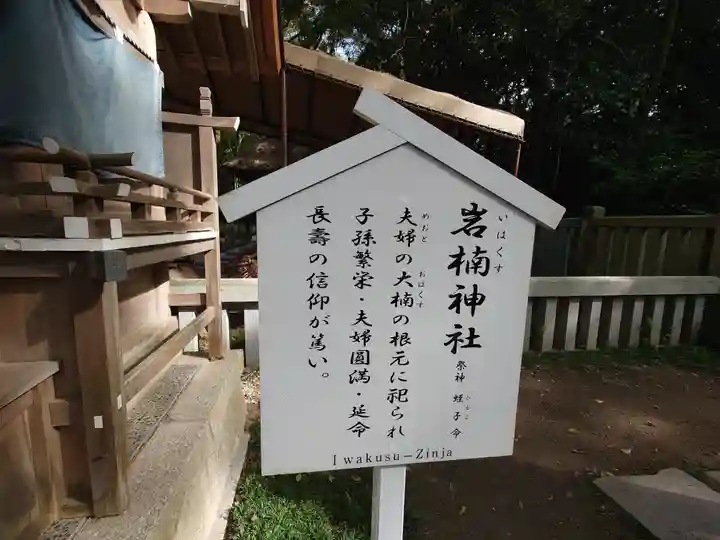 いはくす
岩楠神社
祭神 蛭子命
ひるこ
めおと おほくす
夫婦の大楠の根元に祀られ
子孫繁栄・夫婦圓満・延命
長壽の信仰が篤い。
Iwakusu−Zinja